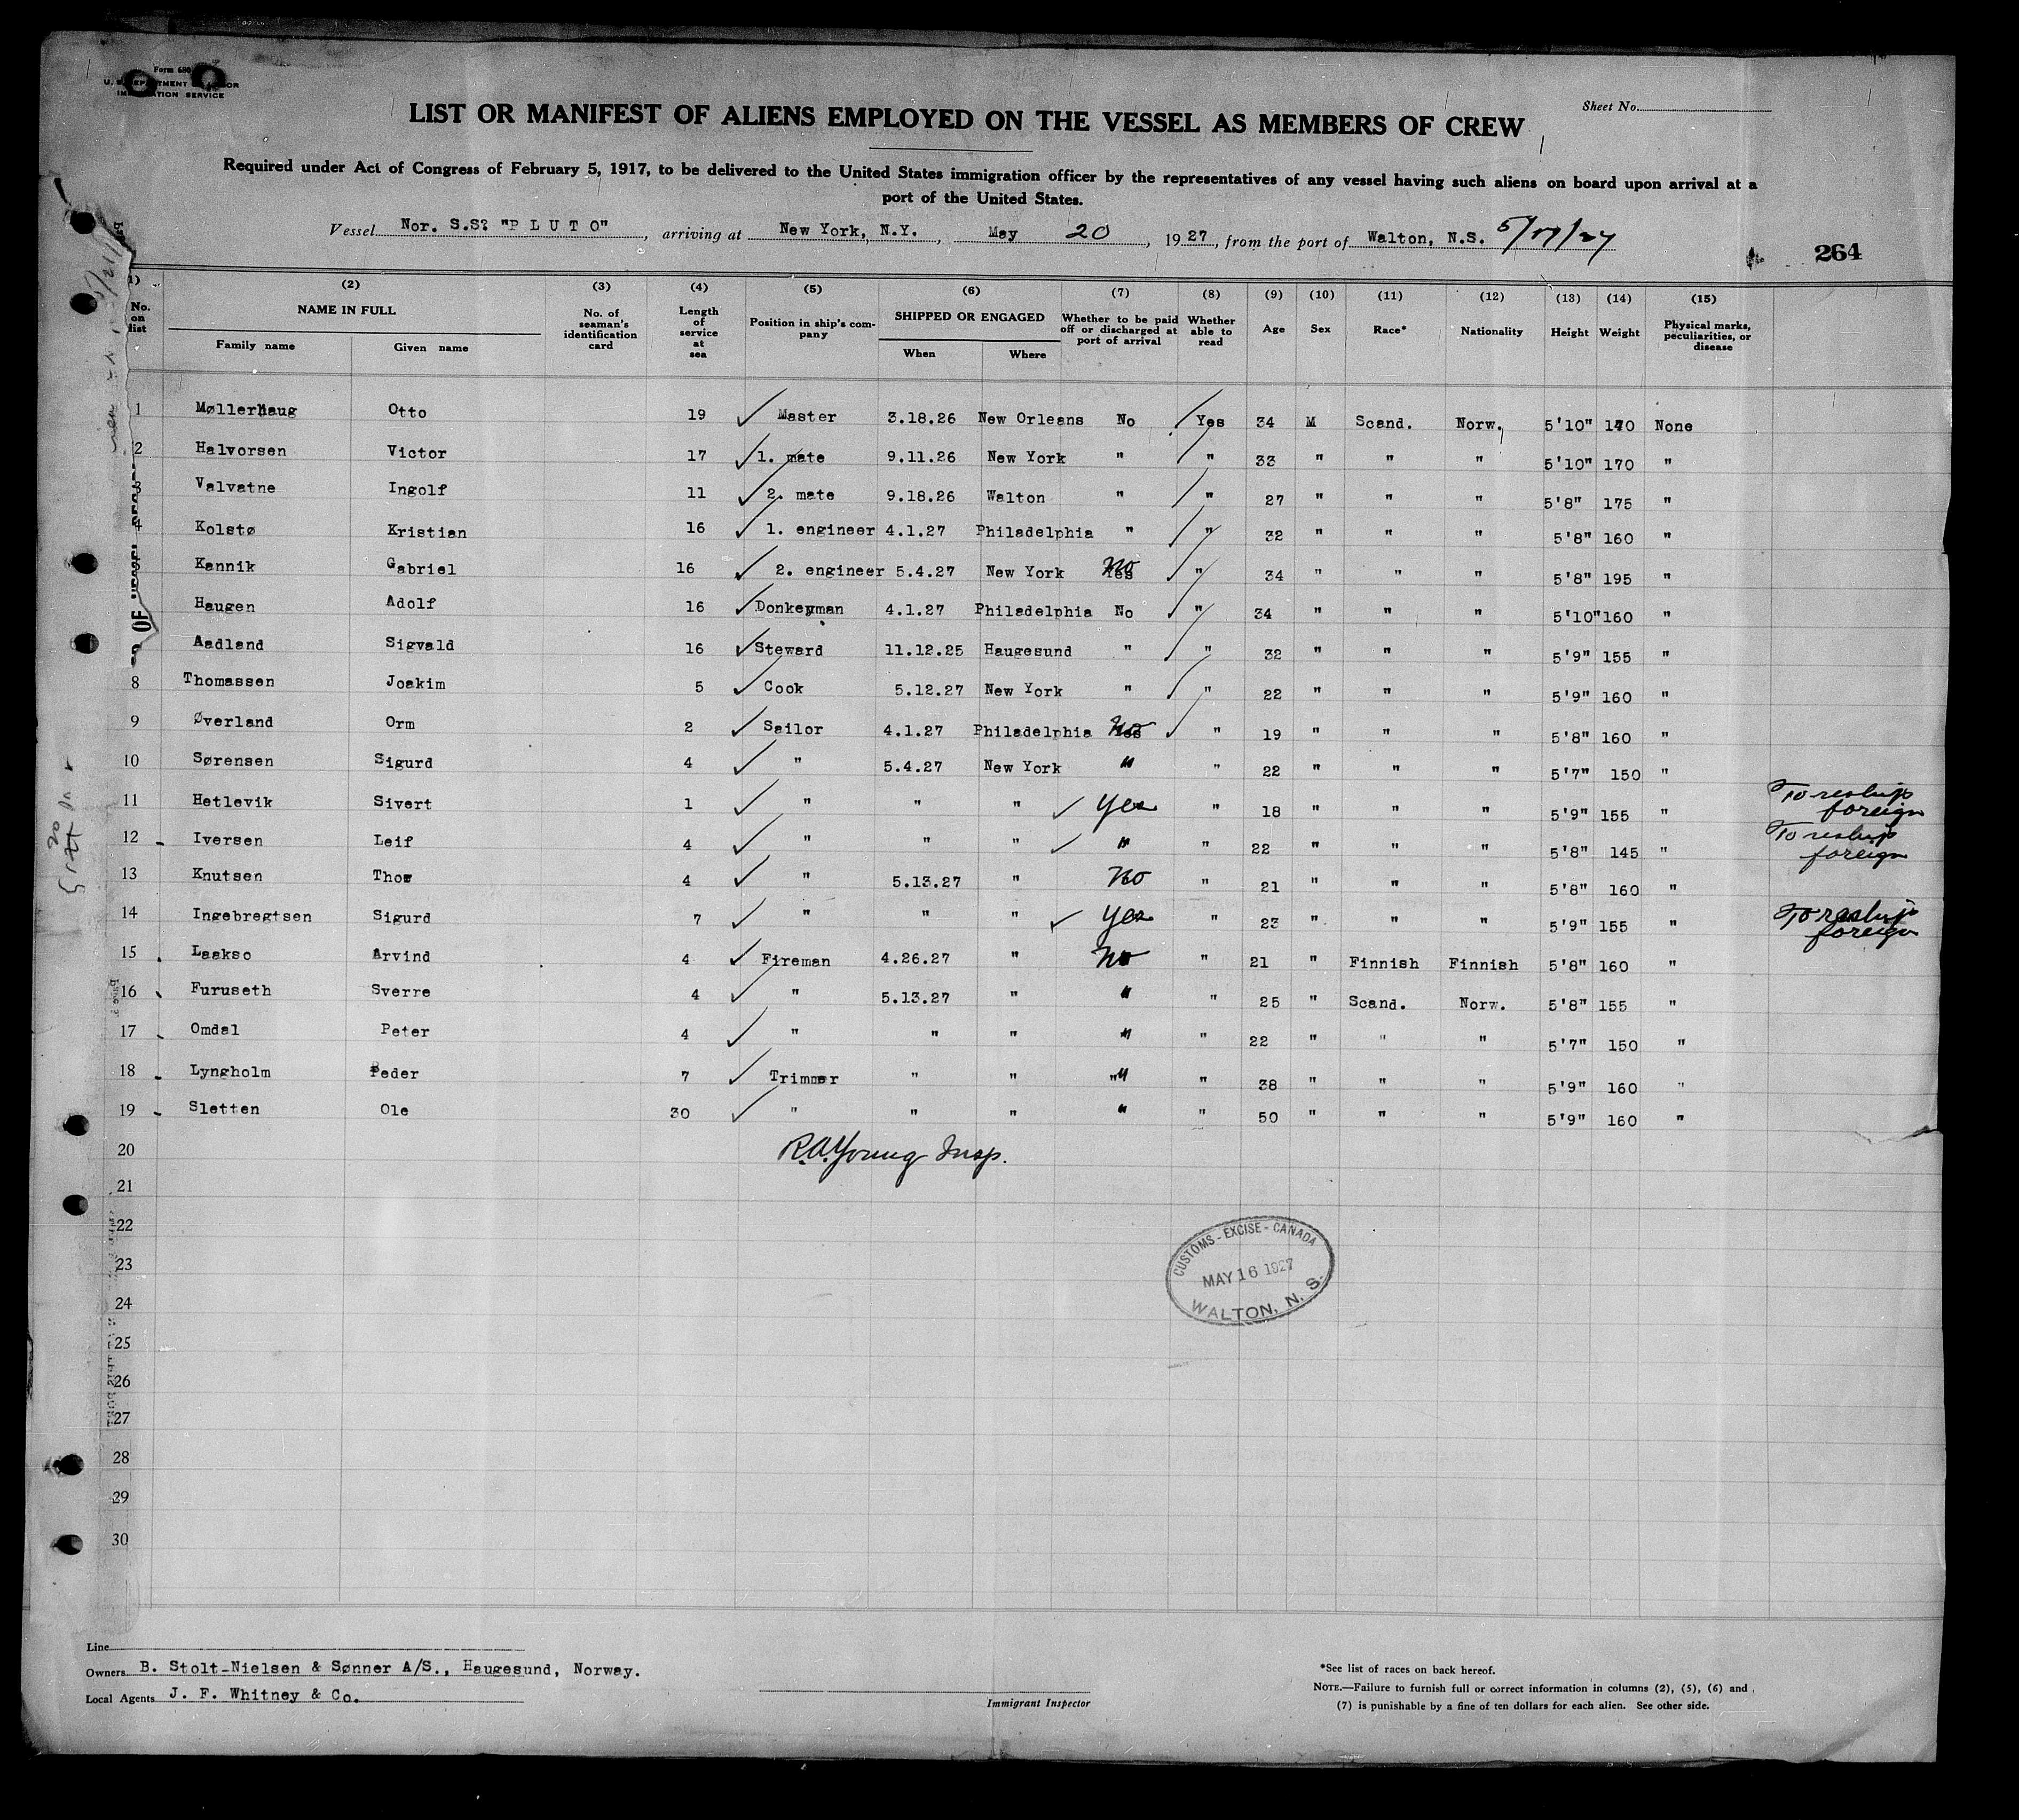 Form 680
U. S. DEPARTMENT OF LABOR
IMMIGRATION SERVICE
Sheet No.
LIST OR MANIFEST OF ALIENS EMPLOYED ON THE VESSEL AS MEMBERS OF CREW
Required under Act of Congress of February 5, 1917, to be delivered to the United States immigration officer by the representatives of any vessel having such aliens on board upon arrival at a
port of the United States.
Vessel Nor. S.S? "P L U T O", arriving at New York, N.Y., May 20, 1927, from the port of Walton, N.S. 5/17/27
264
(1) (2) (3) (4) (5) (6) (7) (8) (9) (10) (11) (12) (13) (14) (15)
No. on list NAME IN FULL Family name Given name No. of seaman's identification card Length of service at sea Position in ship's company SHIPPED OR ENGAGED When Where Whether to be paid off or discharged at port of arrival Whether able to read Age Sex Race* Nationality Height Weight Physical marks, peculiarities, or disease
1 Møllerhaug Otto 19 Master 3.18.26 New Orleans No Yes 34 M Scand. Norw. 5'10" 170 None
2 Halvorsen Victor 17 1. mate 9.11.26 New York " " 33 " " " 5'10" 170 "
3 Valvatne Ingolf 11 2. mate 9.18.26 Walton " " 27 " " " 5'8" 175 "
4 Kolstø Kristian 16 1. engineer 4.1.27 Philadelphia " " 32 " " " 5'8" 160 "
5 Kannik Gabriel 16 2. engineer 5.4.27 New York No " 34 " " " 5'8" 195 "
Haugen Adolf 16 Donkeyman 4.1.27 Philadelphia No " 34 " " " 5'10" 160 "
Aadland Sigvald 16 Steward 11.12.25 Haugesund " " 32 " " " 5'9" 155 "
8 Thomassen Joakim 5 Cook 5.12.27 New York " " 22 " " " 5'9" 160 "
9 Øverland Orm 2 Sailor 4.1.27 Philadelphia No " 19 " " " 5'8" 160 "
10 Sørensen Sigurd 4 " 5.4.27 New York " " 22 " " " 5'7" 150 "
11 Hetlevik Sivert 1 " " " Yes " 18 " " " 5'9" 155 " To reship foreign
12 Iversen Leif 4 " " " " " 22 " " " 5'8" 145 " To reship foreign
13 Knutsen Thor 4 " 5.13.27 " No " 21 " " " 5'8" 160 "
14 Ingebregtsen Sigurd 7 " " " Yes " 23 " " " 5'9" 155 " To reship foreign
15 Laakso Arvind 4 Fireman 4.26.27 " No " 21 " Finnish Finnish 5'8" 160 "
16 Furuseth Sverre 4 " 5.13.27 " " " 25 " Scand. Norw. 5'8" 155 "
17 Omdal Peter 4 " " " " " 22 " " " 5'7" 150 "
18 Lyngholm Peder 7 Trimmer " " " " 38 " " " 5'9" 160 "
19 Sletten Ole 30 " " " " " 50 " " " 5'9" 160 "
20
R.A. Young Insp.
21
22
23
24
25
26
27
28
29
30
CUSTOMS - EXCISE - CANADA
MAY 16 1927
WALTON, N. S.
Line
Owners B. Stolt-Nielsen & Sønner A/S., Haugesund, Norway.
Local Agents J. F. Whitney & Co.
Immigrant Inspector
*See list of races on back hereof.
NOTE.—Failure to furnish full or correct information in columns (2), (5), (6) and
(7) is punishable by a fine of ten dollars for each alien. See other side.